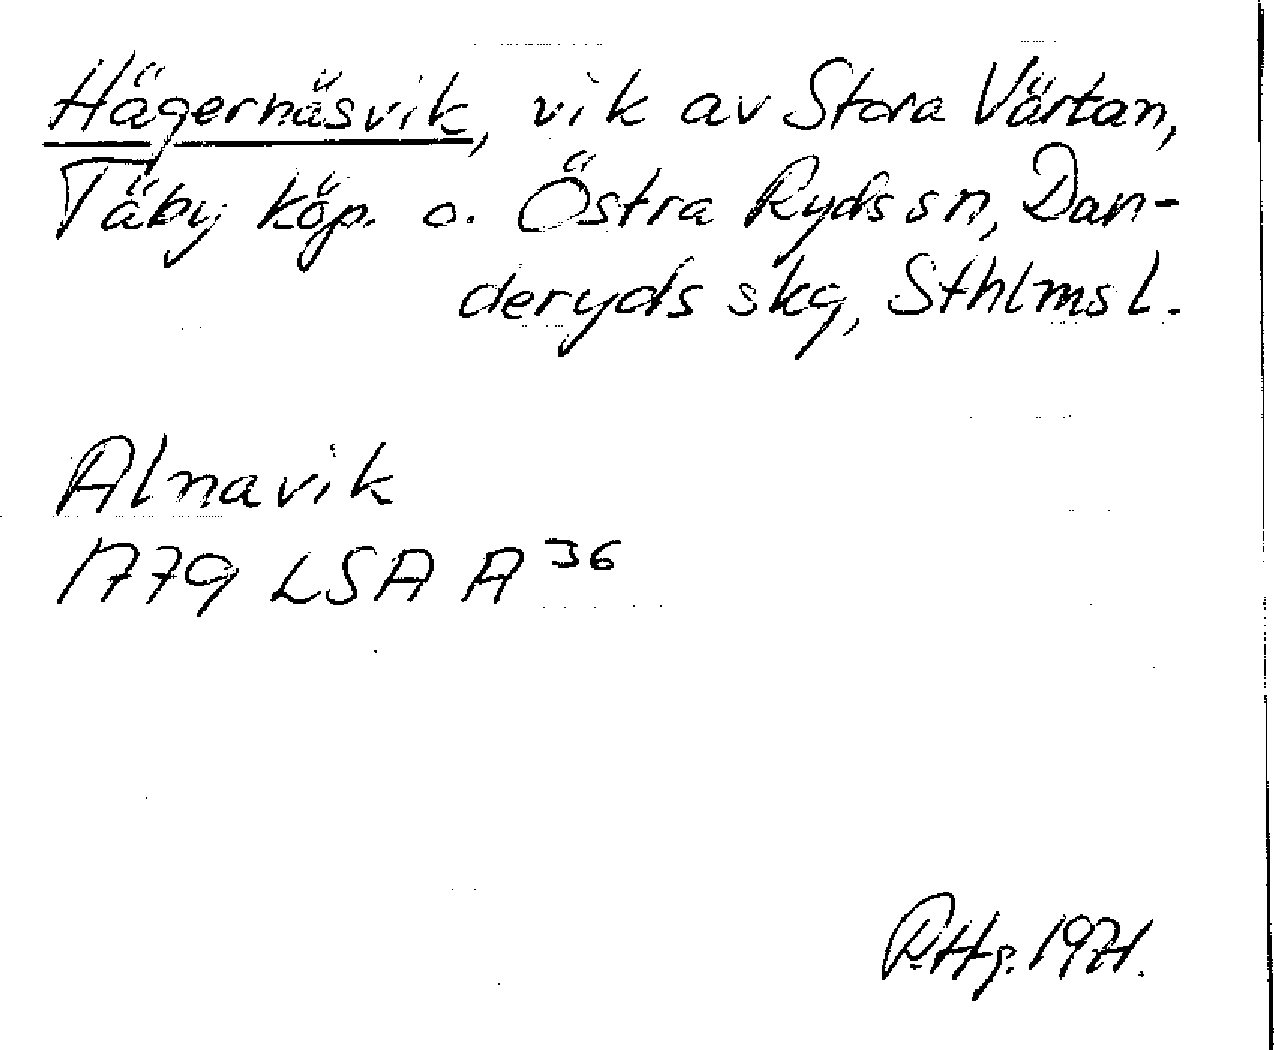 Hägernäsvik, vik av Stora Värtan,
Täby köp. o. Östra Ryds sn, Dan-
deryds skg, Sthlms l.
Alnavik
1779 LSA A 36
R.Hg. 1971.